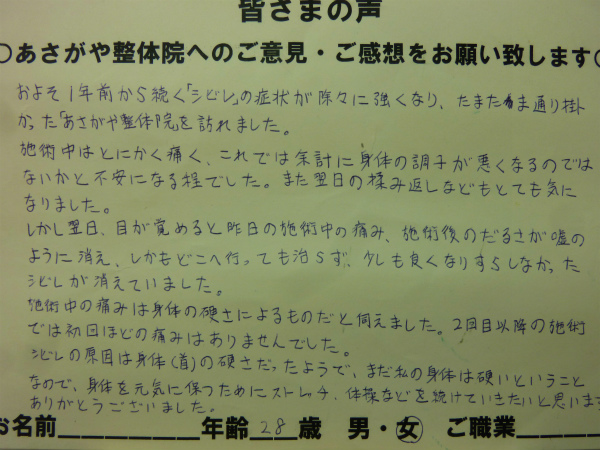 皆さまの声
○あさがや整体院へのご意見・ご感想をお願い致します○
およそ1年前から続く「シビレ」の症状が除々に強くなり、たまたま通り掛
かった「あさがや整体院」を訪れました。
施術中はとにかく痛く、これでは余計に身体の調子が悪くなるのでは
ないかと不安になる程でした。また翌日の揉み返しなどもとても気に
なりました。
しかし翌日、目が覚めると昨日の施術中の痛み、施術後のだるさが嘘の
ように消え、しかもどこへ行っても治らず、少しも良くなりすらしなかった
シビレが消えていました。
施術中の痛みは身体の硬さによるものだと伺えました。2回目以降の施術
では初回ほどの痛みはありませんでした。
シビレの原因は身体(首)の硬さだったようで、まだ私の身体は硬いということ
なので、身体を元気に保つためにストレッチ、体操などを続けていきたいと思います
ありがとうございました。
お名前＿＿＿＿＿＿年齢 28 歳 男・女 ご職業＿＿＿